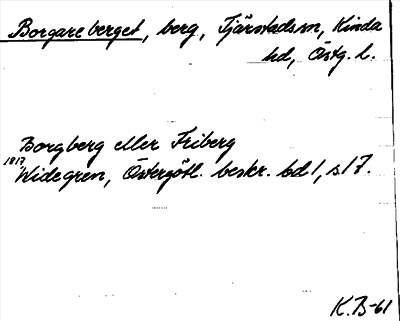 Borgareberget, berg, Tjärstads sn, Kinda
hd, Östg. l.
Borgberg eller Friberg
1817, Widegren, Östergötl. beskr. bd 1, s 17.
K.B-61